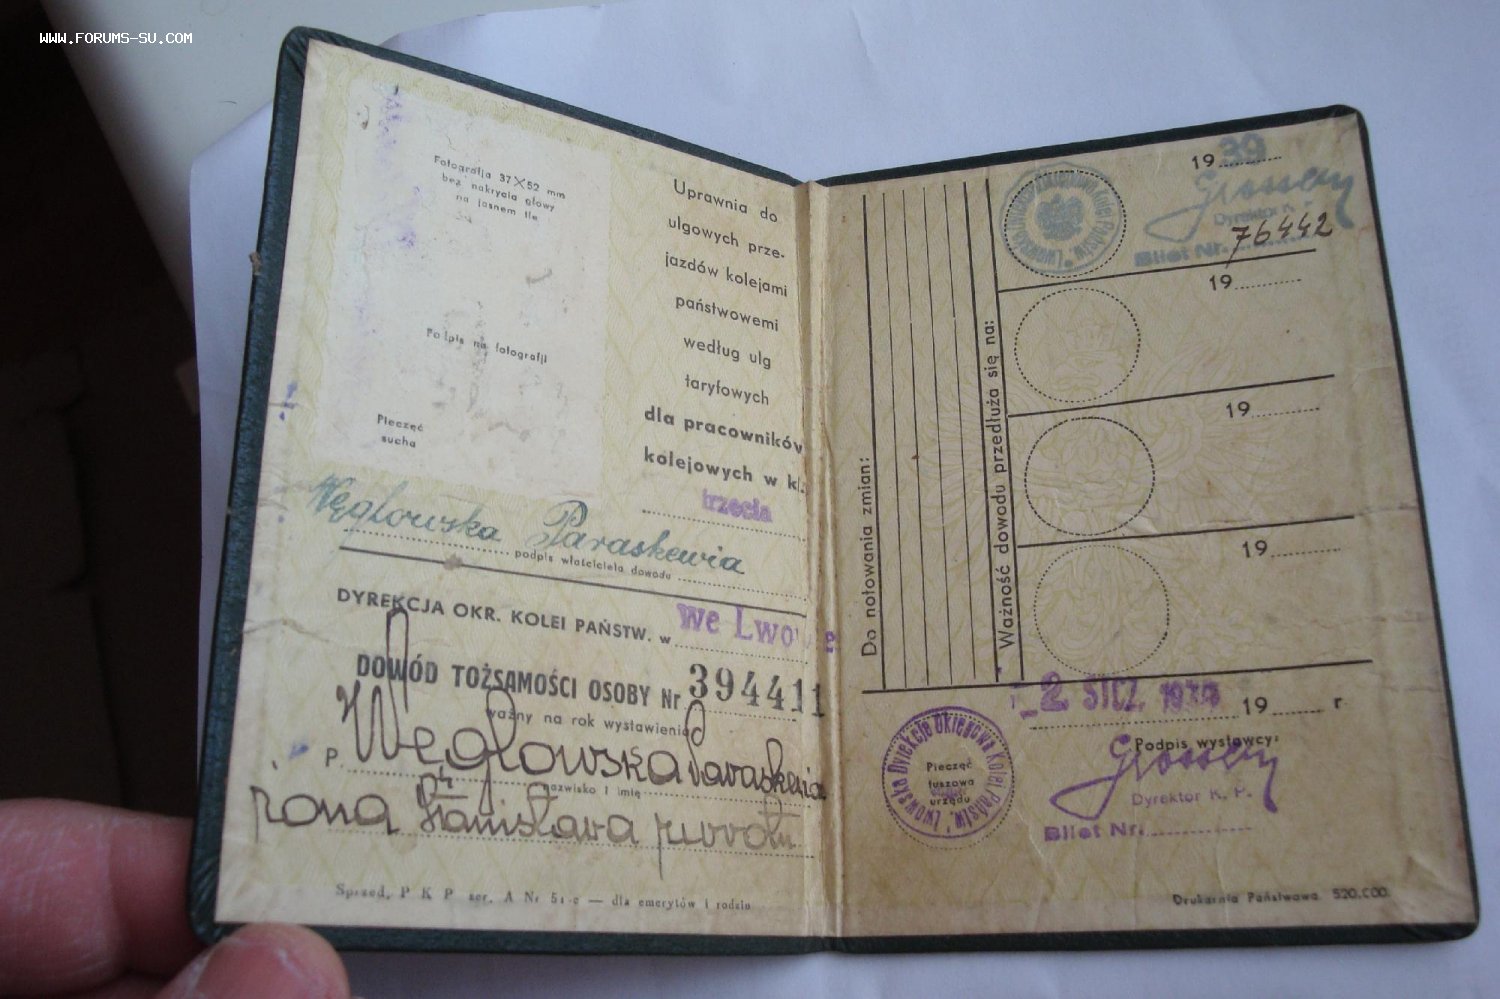 WWW.FORUMS-SU.COM
Fotografja 37×52 mm
bez nakrycia głowy
na jasnem tle
Podpis na fotografji
Pieczęć
sucha
Uprawnia do
ulgowych prze-
jazdów kolejami
państwowemi
według ulg
taryfowych
dla pracowników
kolejowych w kl.
trzecia
Węglowska Paraskewia
podpis właściciela dowodu
DYREKCJA OKR. KOLEI PAŃSTW. w we Lwowie
DOWÓD TOŻSAMOŚCI OSOBY Nr 394411
ważny na rok wystawienia
P. Węglowska Paraskewia
nazwisko i imię
żona Stanisława
Sprzed. P K P ser. A Nr 51-c — dla emerytów i rodzin
Do notowania zmian:
Ważność dowodu przedłuża się na:
19 39
Dyrektor K. P.
Bilet Nr. 76442
19
19
19
2 STCZ. 19 r.
Podpis wystawcy:
Dyrektor K. P.
Bilet Nr.
Lwowska Dyrekcja Okręgowa Kolei Państw.
Pieczęć
tuszowa
urzędu
Drukarnia Państwowa 520.000